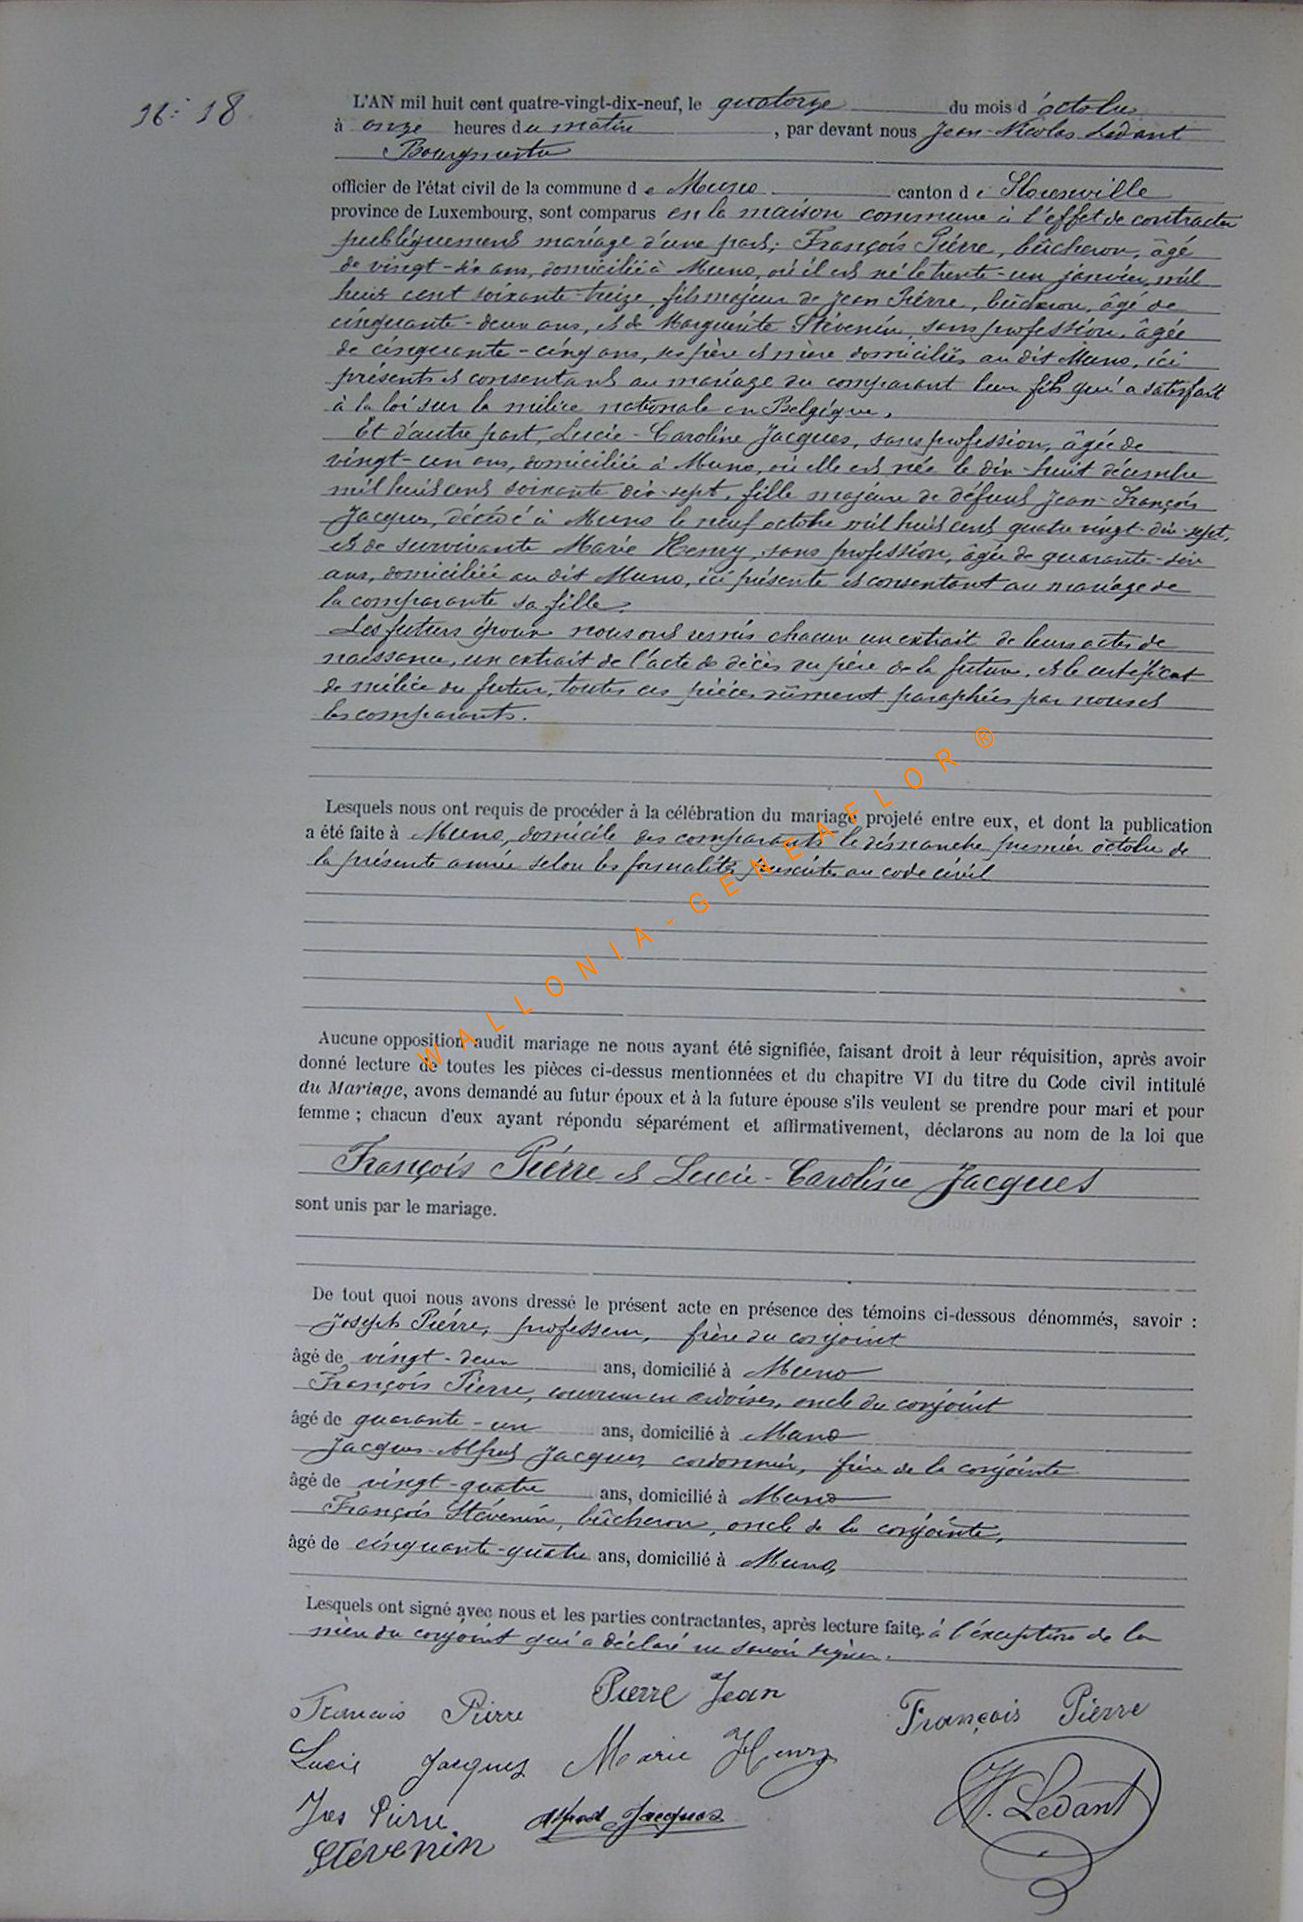 N: 18
L'AN mil huit cent quatre-vingt-dix-neuf, le quatorze du mois d'octobre
à onze heures du matin, par devant nous Jean-Nicolas Ledant
Bourgmestre
officier de l'état civil de la commune de Muno canton de Florenville
province de Luxembourg, sont comparus en la maison commune à l'effet de contracter
publiquement mariage d'une part; François Pierre, bûcheron, âgé
de vingt-six ans, domicilié à Muno, où il est né le trente-un janvier mil
huit cent soixante-treize, fils majeur de Jean Pierre, bûcheron, âgé de
cinquante-deux ans, et de Marguerite Stévenin, sans profession, âgée
de cinquante-cinq ans, ses père et mère domiciliés au dit Muno, ici
présents et consentant au mariage du comparant leur fils qui a satisfait
à la loi sur la milice nationale en Belgique.
Et d'autre part, Lucie-Caroline Jacques, sans profession, âgée de
vingt-un ans, domiciliée à Muno, où elle est née le dix-huit décembre
mil huit cent soixante dix-sept, fille majeure de défunt Jean-François
Jacques, décédé à Muno le neuf octobre mil huit cent quatre vingt-dix-sept,
et de survivante Marie Henry, sans profession, âgée de quarante-six
ans, domiciliée au dit Muno, ici présente et consentant au mariage de
la comparante sa fille.
Les futurs époux nous ont remis chacun un extrait de leurs actes de
naissance, un extrait de l'acte de décès du père de la future, et le certificat
de milice du futur, toutes ces pièces dûment paraphées par nous et
les comparants.
Lesquels nous ont requis de procéder à la célébration du mariage projeté entre eux, et dont la publication
a été faite à Muno, domicile des comparants le dimanche premier octobre de
la présente année selon les formalités prescrites au code civil
Aucune opposition audit mariage ne nous ayant été signifiée, faisant droit à leur réquisition, après avoir
donné lecture de toutes les pièces ci-dessus mentionnées et du chapitre VI du titre du Code civil intitulé
du Mariage, avons demandé au futur époux et à la future épouse s'ils veulent se prendre pour mari et pour
femme ; chacun d'eux ayant répondu séparément et affirmativement, déclarons au nom de la loi que
François Pierre et Lucie-Caroline Jacques
sont unis par le mariage.
De tout quoi nous avons dressé le présent acte en présence des témoins ci-dessous dénommés, savoir :
Joseph Pierre, professeur, frère du conjoint
âgé de vingt-deux ans, domicilié à Muno
François Pierre, couvreur en ardoises, oncle du conjoint
âgé de quarante-un ans, domicilié à Muno
Jacques-Alfred Jacques, cordonnier, frère de la conjointe
âgé de vingt-quatre ans, domicilié à Muno
François Stévenin, bûcheron, oncle de la conjointe,
âgé de cinquante-quatre ans, domicilié à Muno,
Lesquels ont signé avec nous et les parties contractantes, après lecture faite, à l'éxception de la
mère du conjoint qui a déclaré ne savoir signer.
François Pierre Pierre Jean François Pierre
Lucie Jacques Marie Henry
Jos Pierre Alfred Jacques N. Ledant
Stévenin
WALLONIA-GENEAFLOR®